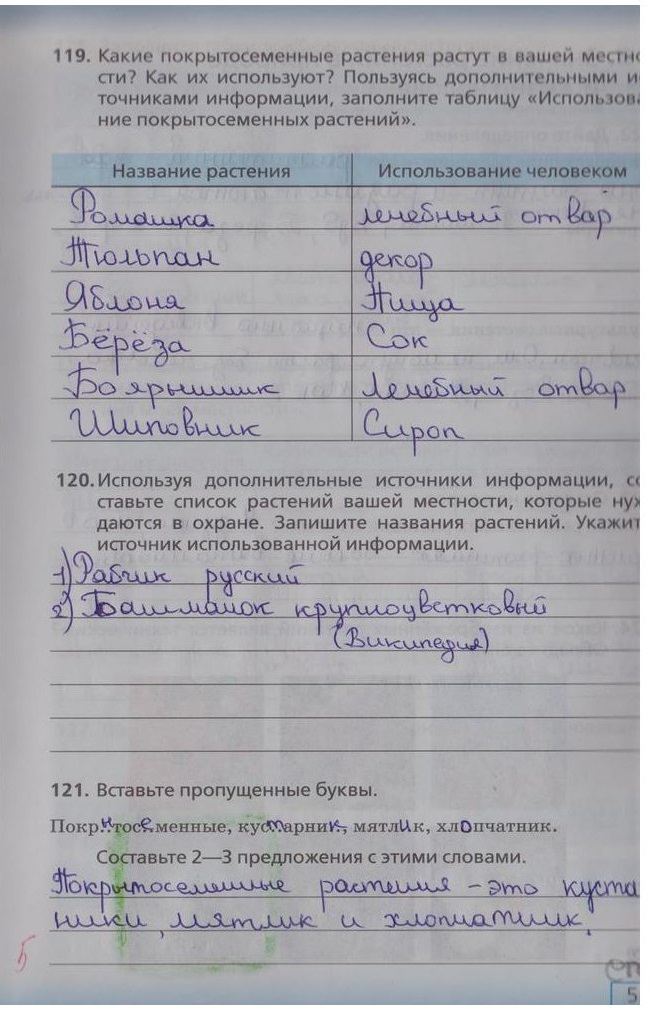 119. Какие покрытосеменные растения растут в вашей местно
сти? Как их используют? Пользуясь дополнительными и
точниками информации, заполните таблицу «Использова
ние покрытосеменных растений».
Название растения Использование человеком
Ромашка лечебный отвар
Тюльпан декор
Яблоня Пища
Берёза Сок
Боярышник Лечебный отвар
Шиповник Сироп
120. Используя дополнительные источники информации, со
ставьте список растений вашей местности, которые нуж
даются в охране. Запишите названия растений. Укажит
источник использованной информации.
1) Рабчик русский
2) Башмачок крупноцветковый
(Википедия)
121. Вставьте пропущенные буквы.
Покрытосеменные, кустарник, мятлик, хлопчатник.
Составьте 2—3 предложения с этими словами.
Покрытосеменные растения – это куста
ники, мятлик и хлопчатник.
5
5